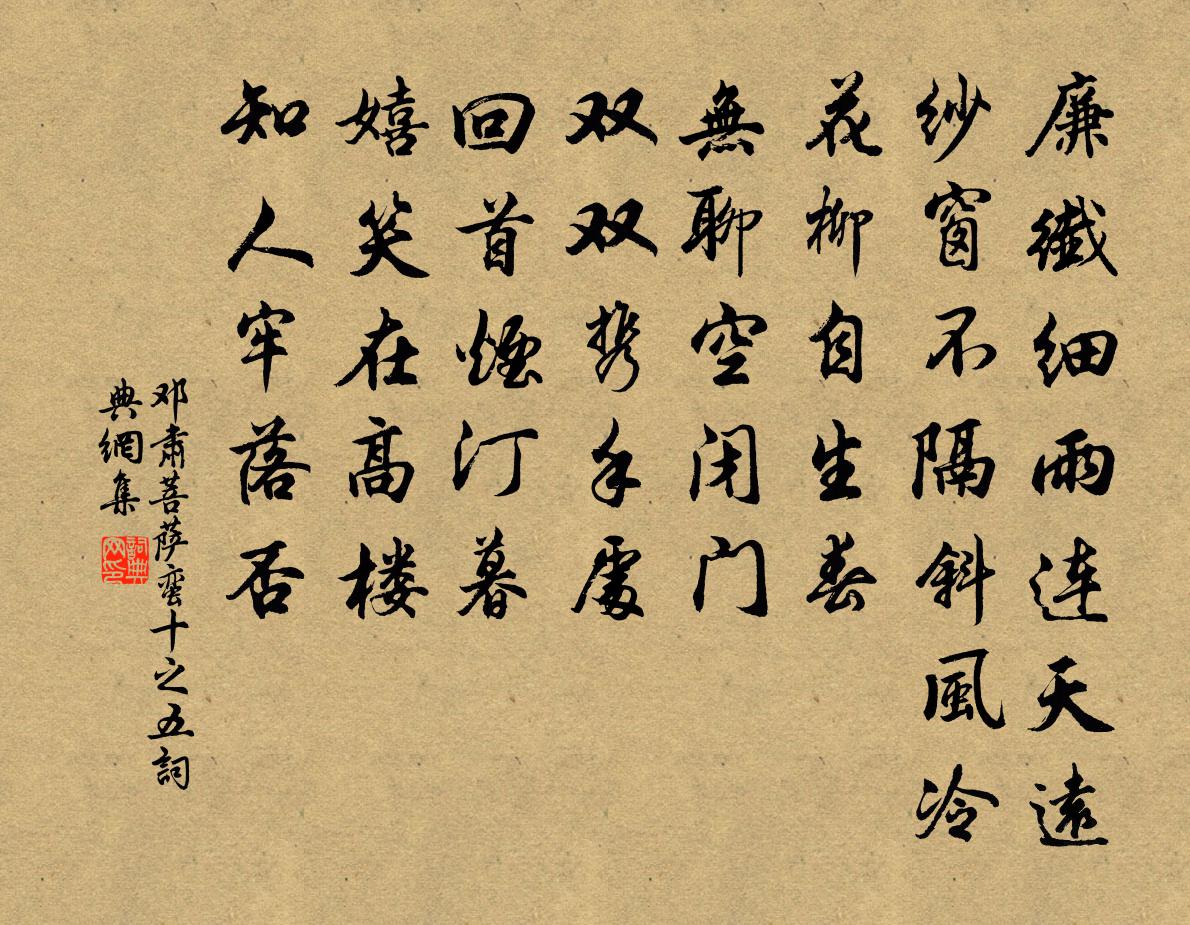 廉纖細雨連天遠
紗窗不隔斜風冷
花柳自生春
無聊空闭门
双双携手處
回首煙汀暮
嬉笑在高楼
知人牢落否
邓肅菩萨蛮十之五詞
典網集
詞典
网印